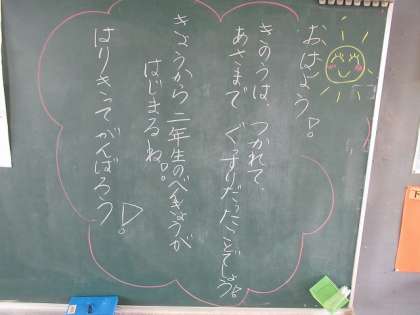 おはよう!
きのうは、つかれて、
あさまで ぐっすりだったことでしょう。
きょうから 二年生のべんきょうが
はじまるね!!
はりきってがんばろう!